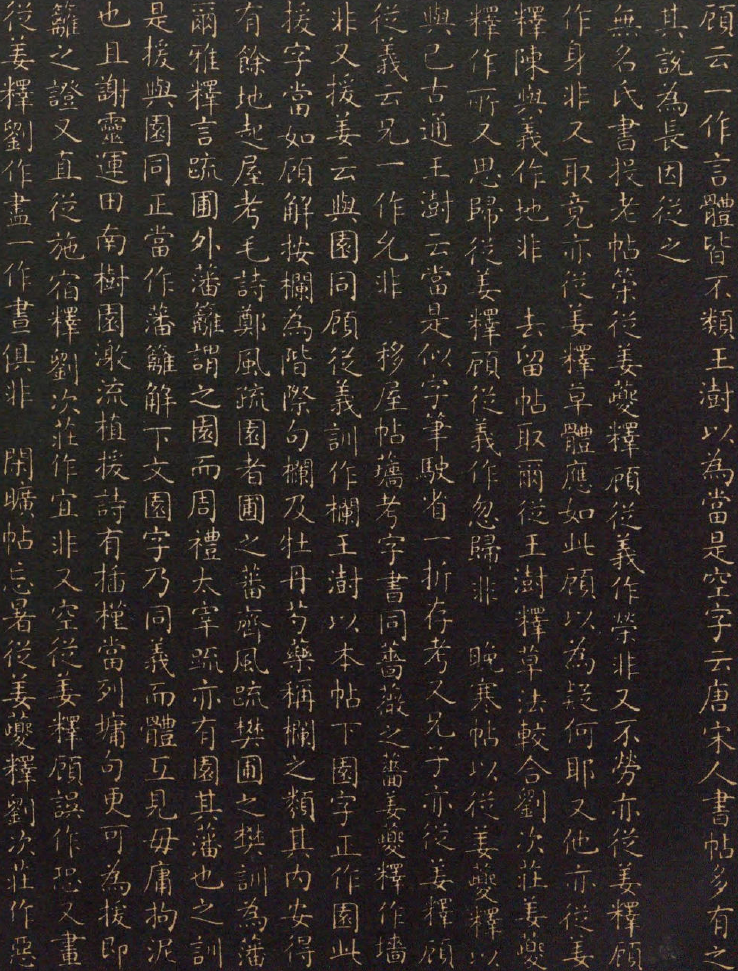 顧云一作言體皆不類王澍以為當是空字云唐宋人書帖多有之
其說為長因從之
無名氏書投老帖榮從姜夔釋顧從義作榮非又不勞亦從姜釋顧
作身非又取竟亦從姜釋草體應如此顧以為疑何耶又他亦從姜
釋陳與義作地非 去留帖取爾從王澍釋草法較合劉次莊姜夔
釋作所又思歸從姜釋顧從義作忽歸非 晚寒帖以從姜夔釋以
與已古通王澍云當是似字筆駛省一折存考又兄子亦從姜釋顧
從義云兄一作允非 移屋帖蘠考字書同薔薇之薔姜夔釋作墻
非又援姜云與園同顧從義訓作欄王澍以本帖下園字正作園此
援字當如顧解按欄為階際句欄及牡丹芍藥稱欄之類其內安得
有餘地起屋考毛詩鄭風疏園者圃之蕃齊風疏樊圃之樊訓為藩
爾雅釋言疏圃外藩籬謂之園而周禮太宰疏亦有園其藩也之訓
是援與園同正當作藩籬解下文園字乃同義而體互見毋庸拘泥
也且謝靈運田南樹園激流植援詩有插槿當列墉句更可為援即
籬之證又直從施宿釋劉次莊作宜非又空從姜釋顧誤作恐又畫
從姜釋劉作盡一作晝俱非 閑曠帖忘暑從姜夔釋劉次莊作惡